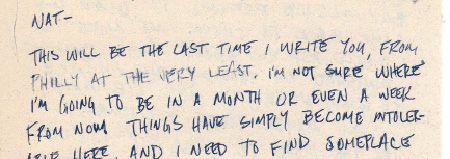 NAT-
THIS WILL BE THE LAST TIME I WRITE YOU, FROM
PHILLY AT THE VERY LEAST. I'M NOT SURE WHERE
I'M GOING TO BE IN A MONTH OR EVEN A WEEK
FROM NOW. THINGS HAVE SIMPLY BECOME INTOLER-
ABLE HERE, AND I NEED TO FIND SOMEPLACE